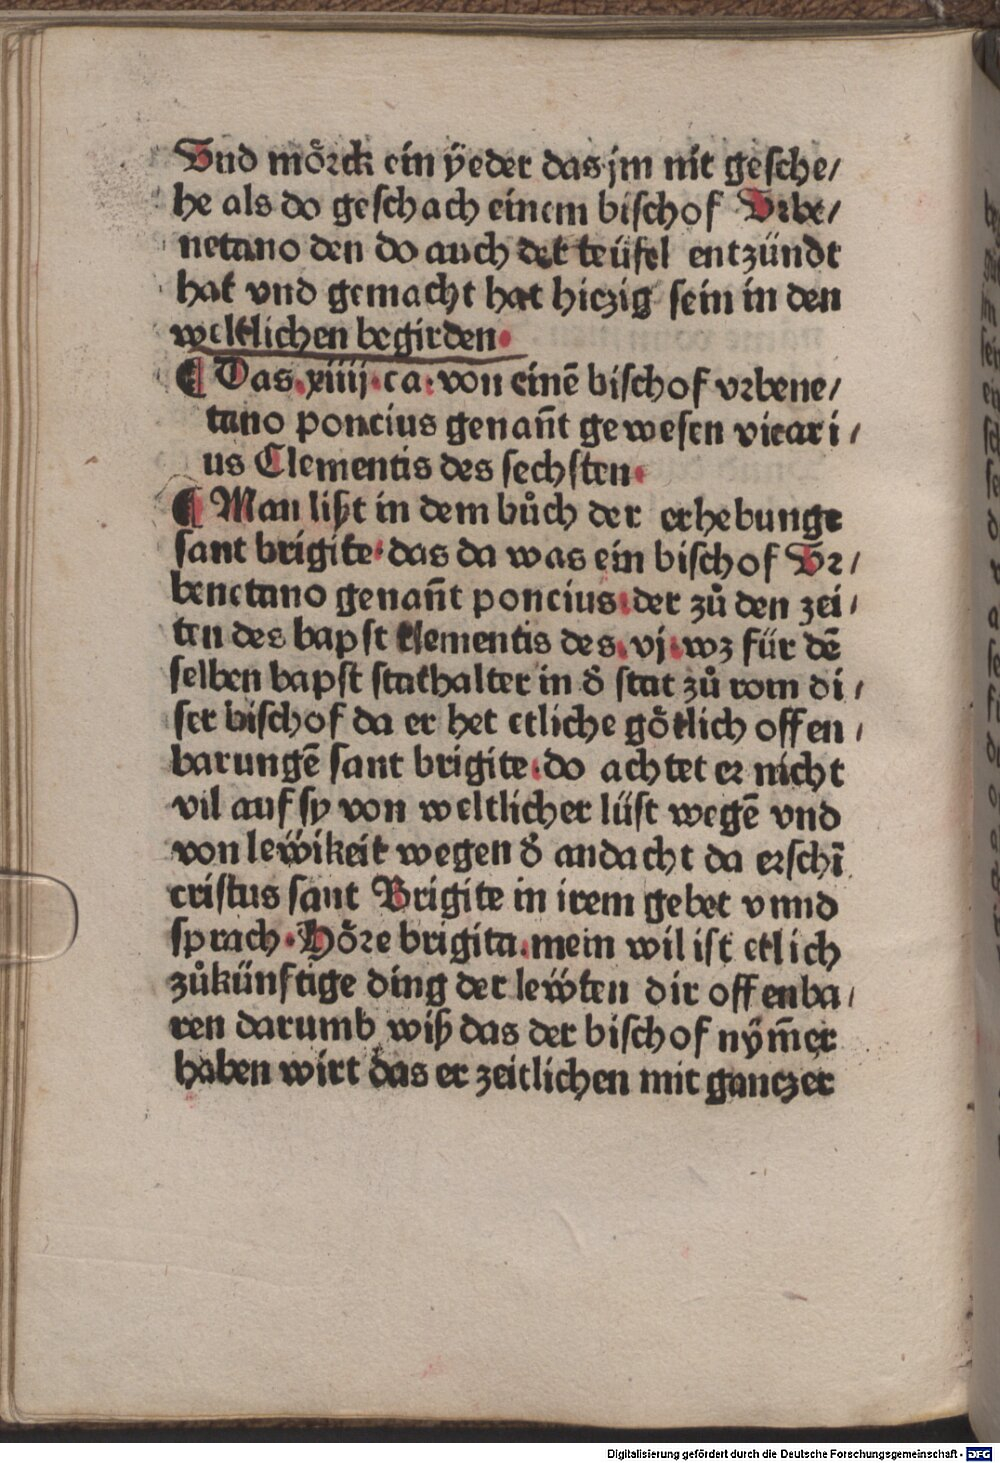 Vnd mörck ein ÿeder das jm nit gesche/
he als do geschach einem bischof Vrbe/
netano den do auch der teüfel entzündt
hat vnd gemacht hat hiczig sein in den
weltlichen begirden.
¶ Das .xiiij. ca. von einē bischof vrbene/
tano poncius genañt gewesen vicari/
us Clementis des sechsten.
¶ Man lißt in dem bůch der erhebunge
sant brigite. das da was ein bischof Vr/
benetano genañt poncius. der zů den zei/
ten des bapst clementis des .vj. wz für dē
selben bapst stathalter in d̓ stat zů rom di/
ser bischof da er het etliche götlich offen/
barungē sant brigite. do achtet er nicht
vil auf sy von weltlicher lüst wegē vnd
von lewikeit wegen d̓ andacht da erschī
cristus sant Brigite in irem gebet vnnd
sprach. Höre brigita. mein wil ist etlich
zůkünftige ding der lewten dir offenba/
ren darumb wiß das der bischof nÿm̄er
haben wirt das er zeitlichen mit ganczer
Digitalisierung gefördert durch die Deutsche Forschungsgemeinschaft - DFG